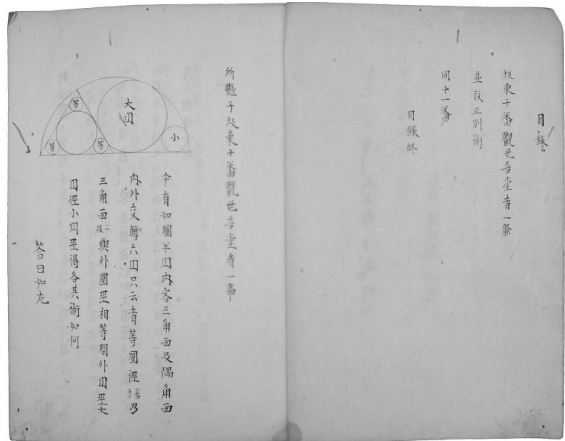 目録
坂東十番觀世音堂者一条
並改正別術
同十一番
目録終
所懸于坂東十番觀世音堂者一事
大円
小
等
等
等
今有如圖半円内容三角面及隅角面
内外交罅六円只云者等圓徑若乃
三角面及與外圓至相等問外円至大
円徑小円至得各其術如何
答曰如左